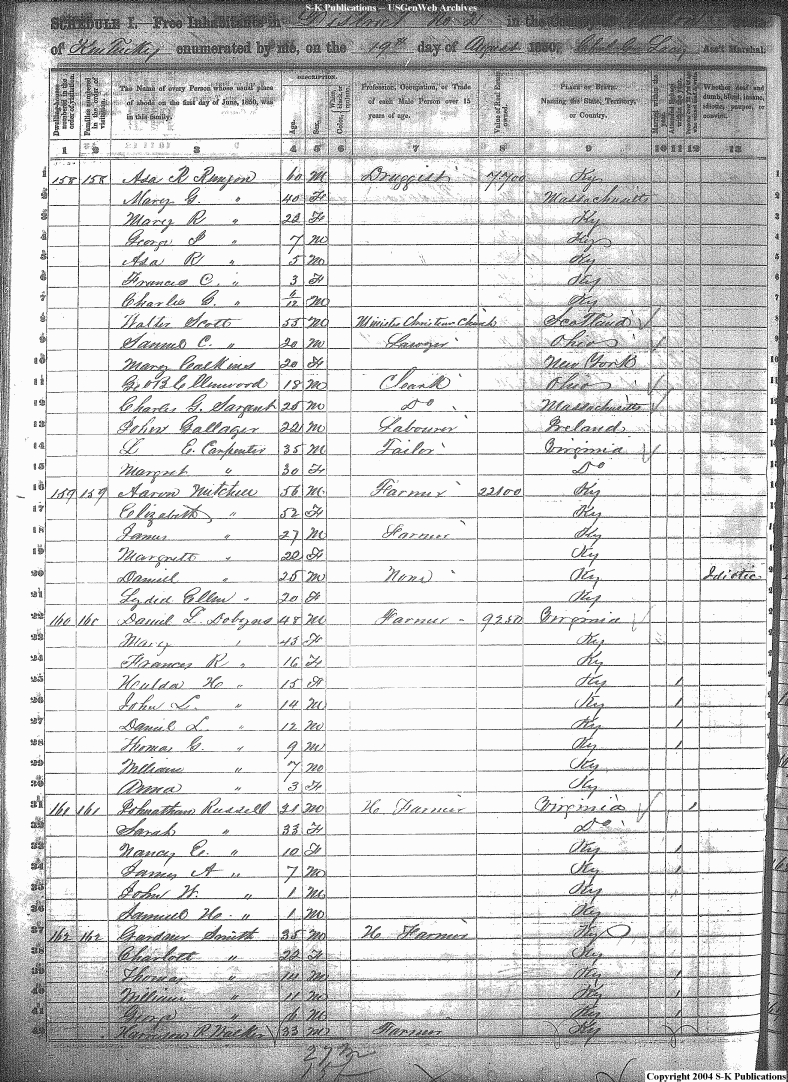 S-K Publications – USGenWeb Archives
SCHEDULE I. Free Inhabitants in District No in the
of Kentucky enumerated by me, on the 19th day of August 1850. Ass't Marshal.
Dwelling-houses numbered in the order of visitation.
Families numbered in the order of visitation.
The Name of every Person whose usual place of abode on the first day of June, 1850, was in this family.
DESCRIPTION.
Age.
Sex.
White, Color, black, or mulatto.
Profession, Occupation, or Trade of each Male Person over 15 years of age.
Value of Real Estate owned.
PLACE OF BIRTH. Naming the State, Territory, or Country.
Married within the year.
Whether deaf and dumb, blind, insane, idiotic, pauper, or convict.
1 2 3 4 5 6 7 8 9 10 11 12 13
1 158 158 Asa R Runyon 60 M Druggist 7700 Ky 1
2 Mary G. " 40 F Massachusetts 2
3 Mary R " 22 F Ky 3
4 George " 7 M Ky 4
5 Asa R " 5 M Ky 5
6 Frances C. " 3 F Ky 6
7 Charles G. " /12 M Ky 7
8 Walter Scott 53 M Minister Christian Church Scotland 8
9 Samuel C. " 20 M Lawyer Ohio 9
10 Mary Calkins 20 F New York 10
11 Ellenwood 18 M Cleark Ohio 11
12 Charles G. Sargent 25 M Do Massachusetts 12
13 John Gallager 22 M Labourer Ireland 13
14 L E. Carpenter 35 M Tailor Virginia 14
15 Margret " 30 F Do 15
16 159 159 Aaron Mitchell 56 M Farmer 22100 Ky 16
17 Elizabeth " 52 F Ky 17
18 James " 27 M Farmer Ky 18
19 Margrett " 22 F Ky 19
20 Daniel " 25 M None Ky Idiotic 20
21 Ellen " 20 F Ky 21
22 160 160 Daniel L. Dobyns 48 M Farmer 9250 Virginia 22
23 Mary " 43 F Ky 23
24 Frances R " 16 F Ky 24
25 Hulda H " 15 F Ky 1 25
26 John L. " 14 M Ky 1 26
27 Daniel L. " 12 M Ky 1 27
28 Thomas G. " 9 M Ky 1 28
29 William " 7 M Ky 29
30 Anna " 3 F Ky 30
31 161 161 Johnathan Russell 31 M H Farmer Virginia 1 31
32 Sarah " 33 F Do 32
33 Nancy E. " 10 F Ky 1 33
34 James A " 7 M Ky 1 34
35 John W. " 1 M Ky 35
36 Samuel H. " 1 M Ky 36
37 162 162 Gardner Smith 35 M H Farmer Ky 37
38 Charlott " 22 F Ky 38
39 Thomas " M Ky 1 39
40 William " 11 M Ky 1 40
41 " 6 M Ky 1 41
42 Harrison R Walker 33 M Farmer Ky 42
Copyright 2004 S-K Publications